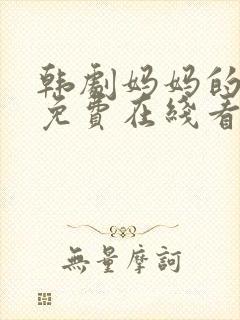 韩劇妈妈的
免費在綫看
無量摩訶